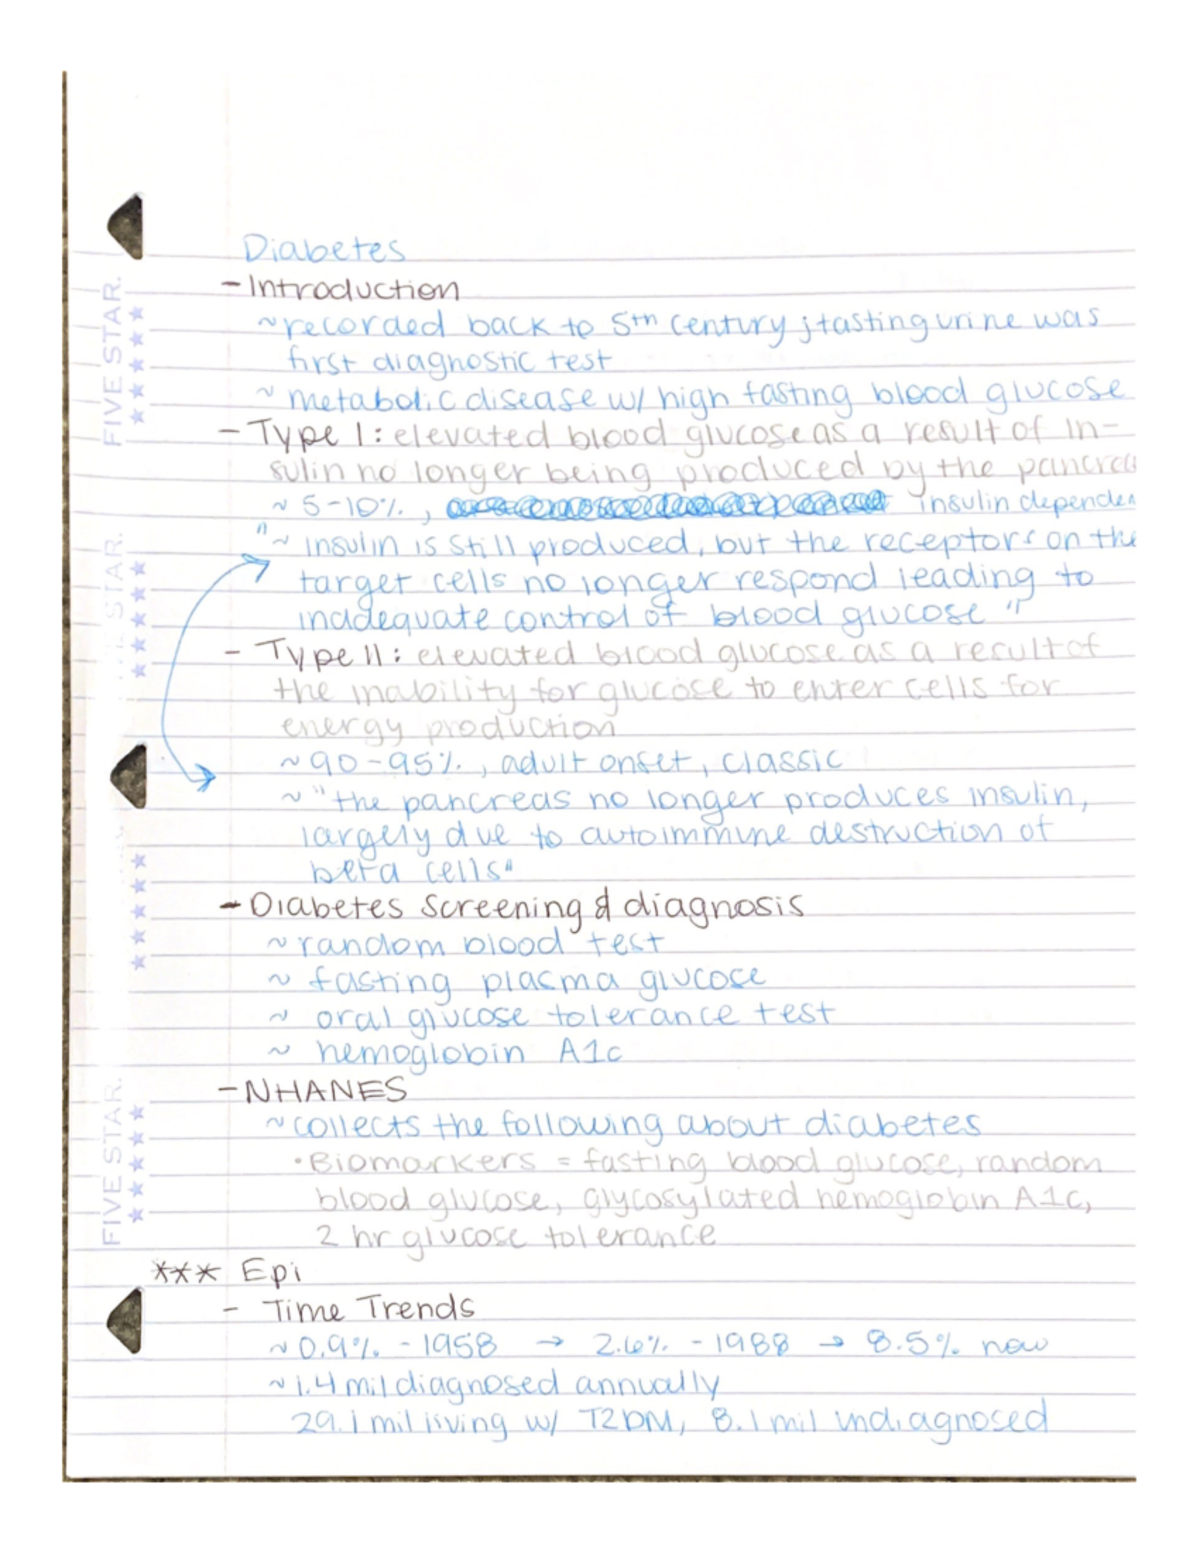 Diabetes
- Introduction
~ recorded back to 5th century; tasting urine was
first diagnostic test
~ metabolic disease w/ high fasting blood glucose
- Type I: elevated blood glucose as a result of in-
sulin no longer being produced by the pancrea
~ 5-10%, insulin dependen
"~ insulin is still produced, but the receptors on the
target cells no longer respond leading to
inadequate control of blood glucose"
- Type II: elevated blood glucose as a result of
the inability for glucose to enter cells for
energy production
~ 90-95%, adult onset, classic
~ "the pancreas no longer produces insulin,
largely due to autoimmune destruction of
beta cells"
- Diabetes Screening & diagnosis
~ random blood test
~ fasting plasma glucose
~ oral glucose tolerance test
~ hemoglobin A1c
- NHANES
~ collects the following about diabetes
• Biomarkers = fasting blood glucose, random
blood glucose, glycosylated hemoglobin A1c,
2 hr glucose tolerance
*** Epi
- Time Trends
~ 0.9% - 1958 → 2.6% - 1988 → 8.5% now
~ 1.4 mil diagnosed annually
29.1 mil living w/ T2DM, 8.1 mil undiagnosed
FIVE STAR.
STAR.
FIVE STAR.